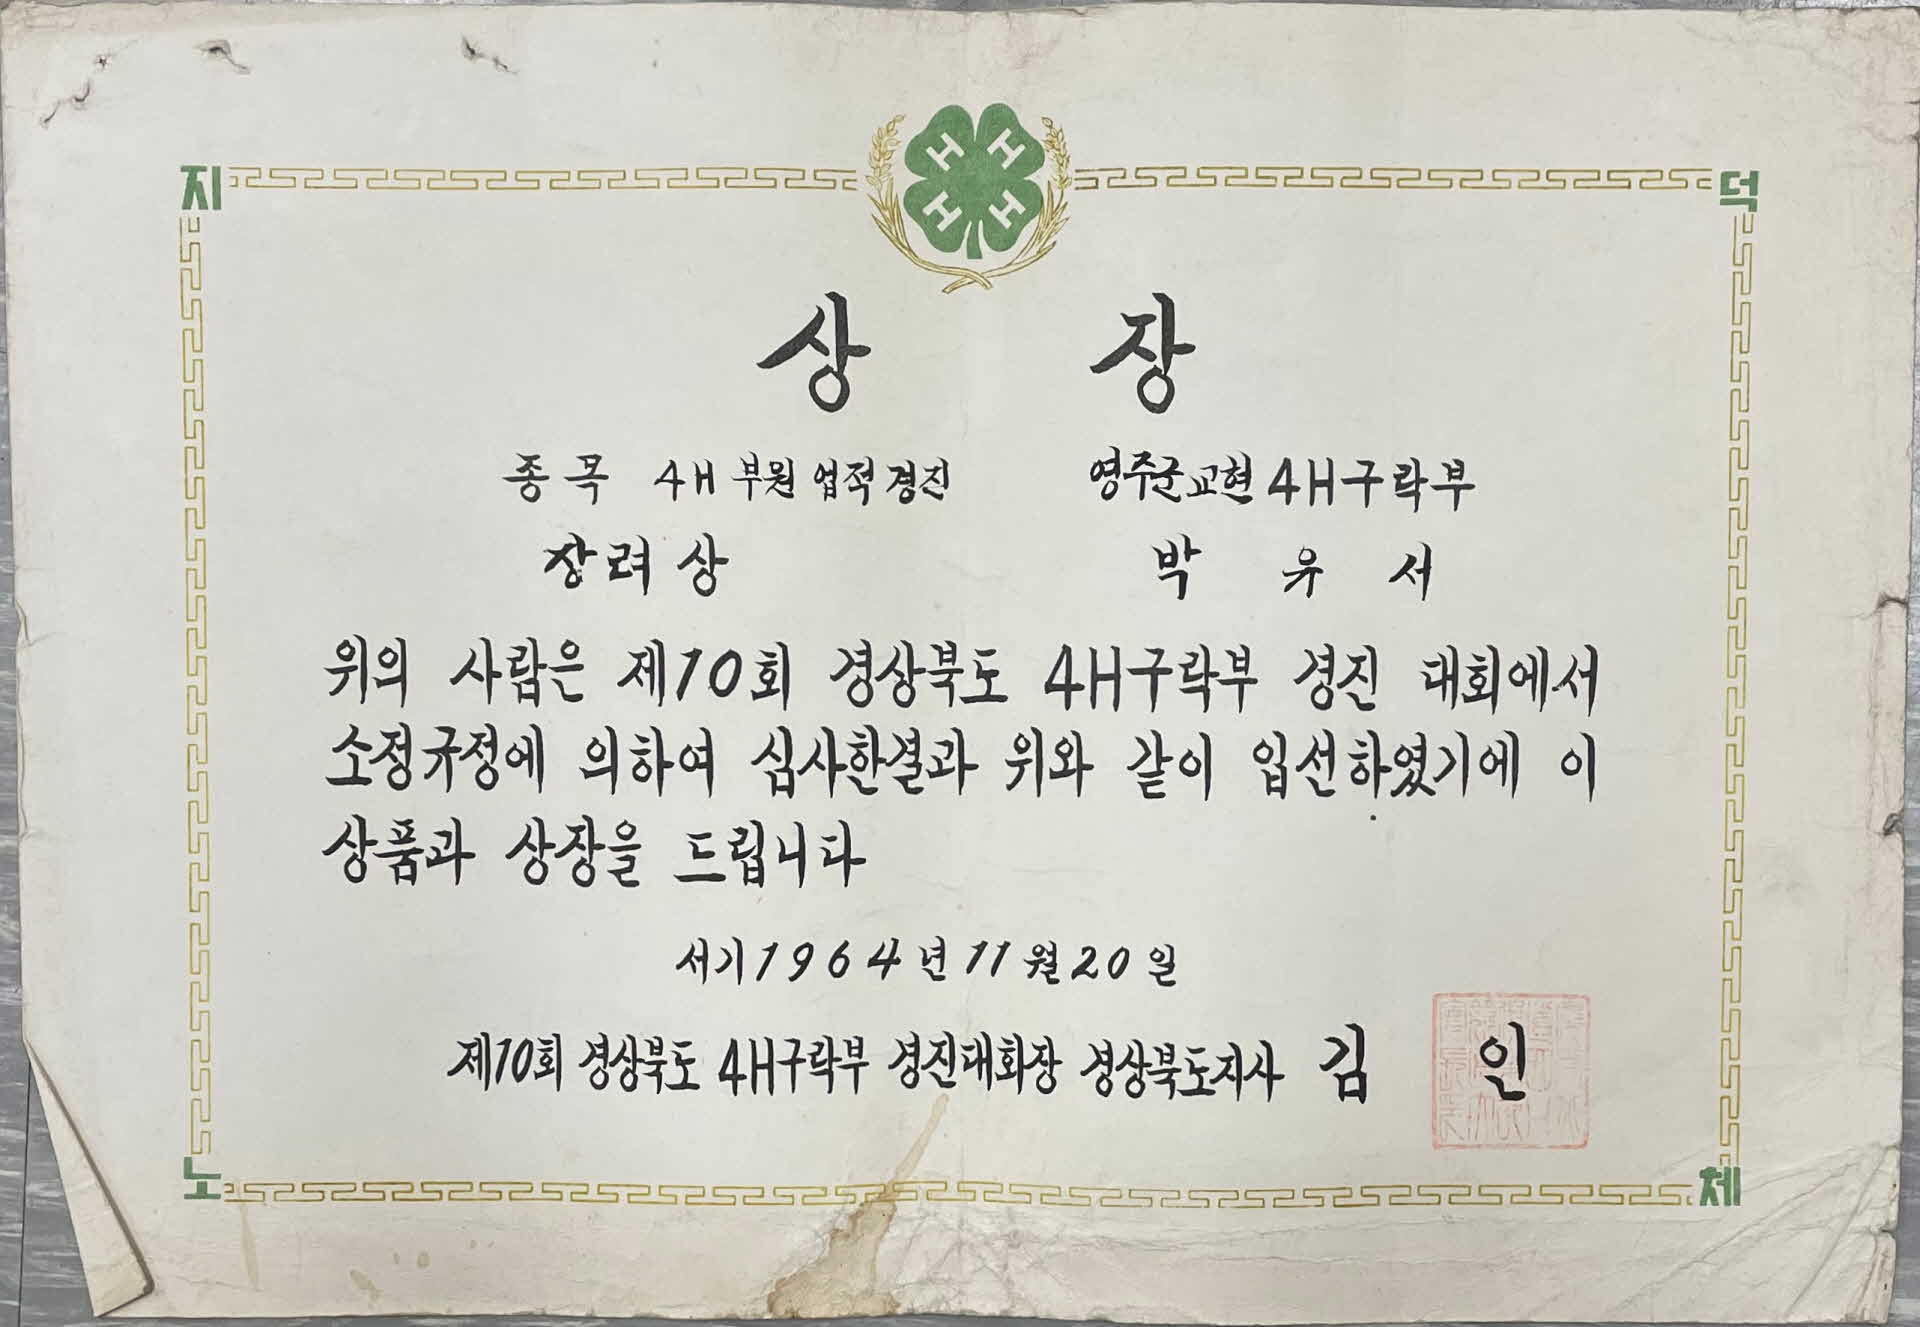 지 덕
H H
H H
상 장
종목 4H 부원 업적경진 영주군 교현 4H구락부
장려상 박 유 서
위의 사람은 제10회 경상북도 4H구락부 경진 대회에서
소정규정에 의하여 심사한결과 위와 같이 입선하였기에 이
상품과 상장을 드립니다
서기 1964년 11월 20일
제10회 경상북도 4H구락부 경진대회장 경상북도지사 김 인
노 체